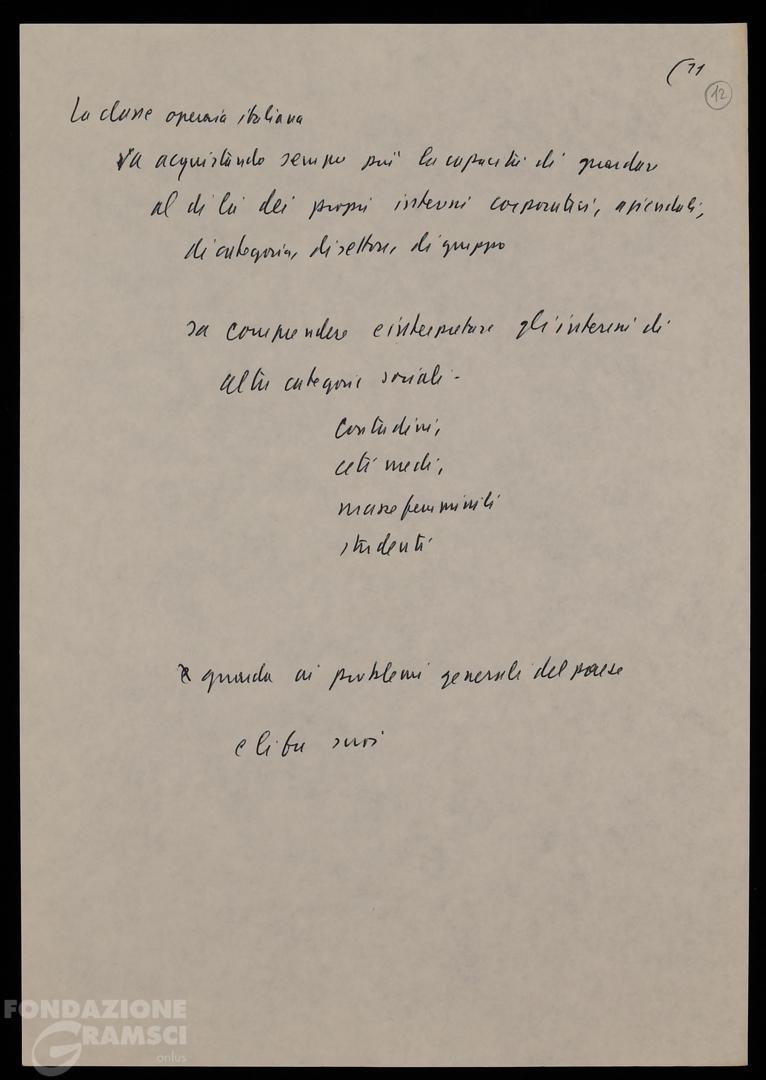 (11
12
La classe operaia italiana
va acquistando sempre più la capacità di guardare
al di là dei propri interessi corporativi, aziendali,
di categoria, di settore, di gruppo
sa comprendere e interpretare gli interessi di
altre categorie sociali -
contadini,
ceti medi,
masse femminili
studenti
guarda ai problemi generali del paese
e li fa suoi
FONDAZIONE
GRAMSCI
onlus